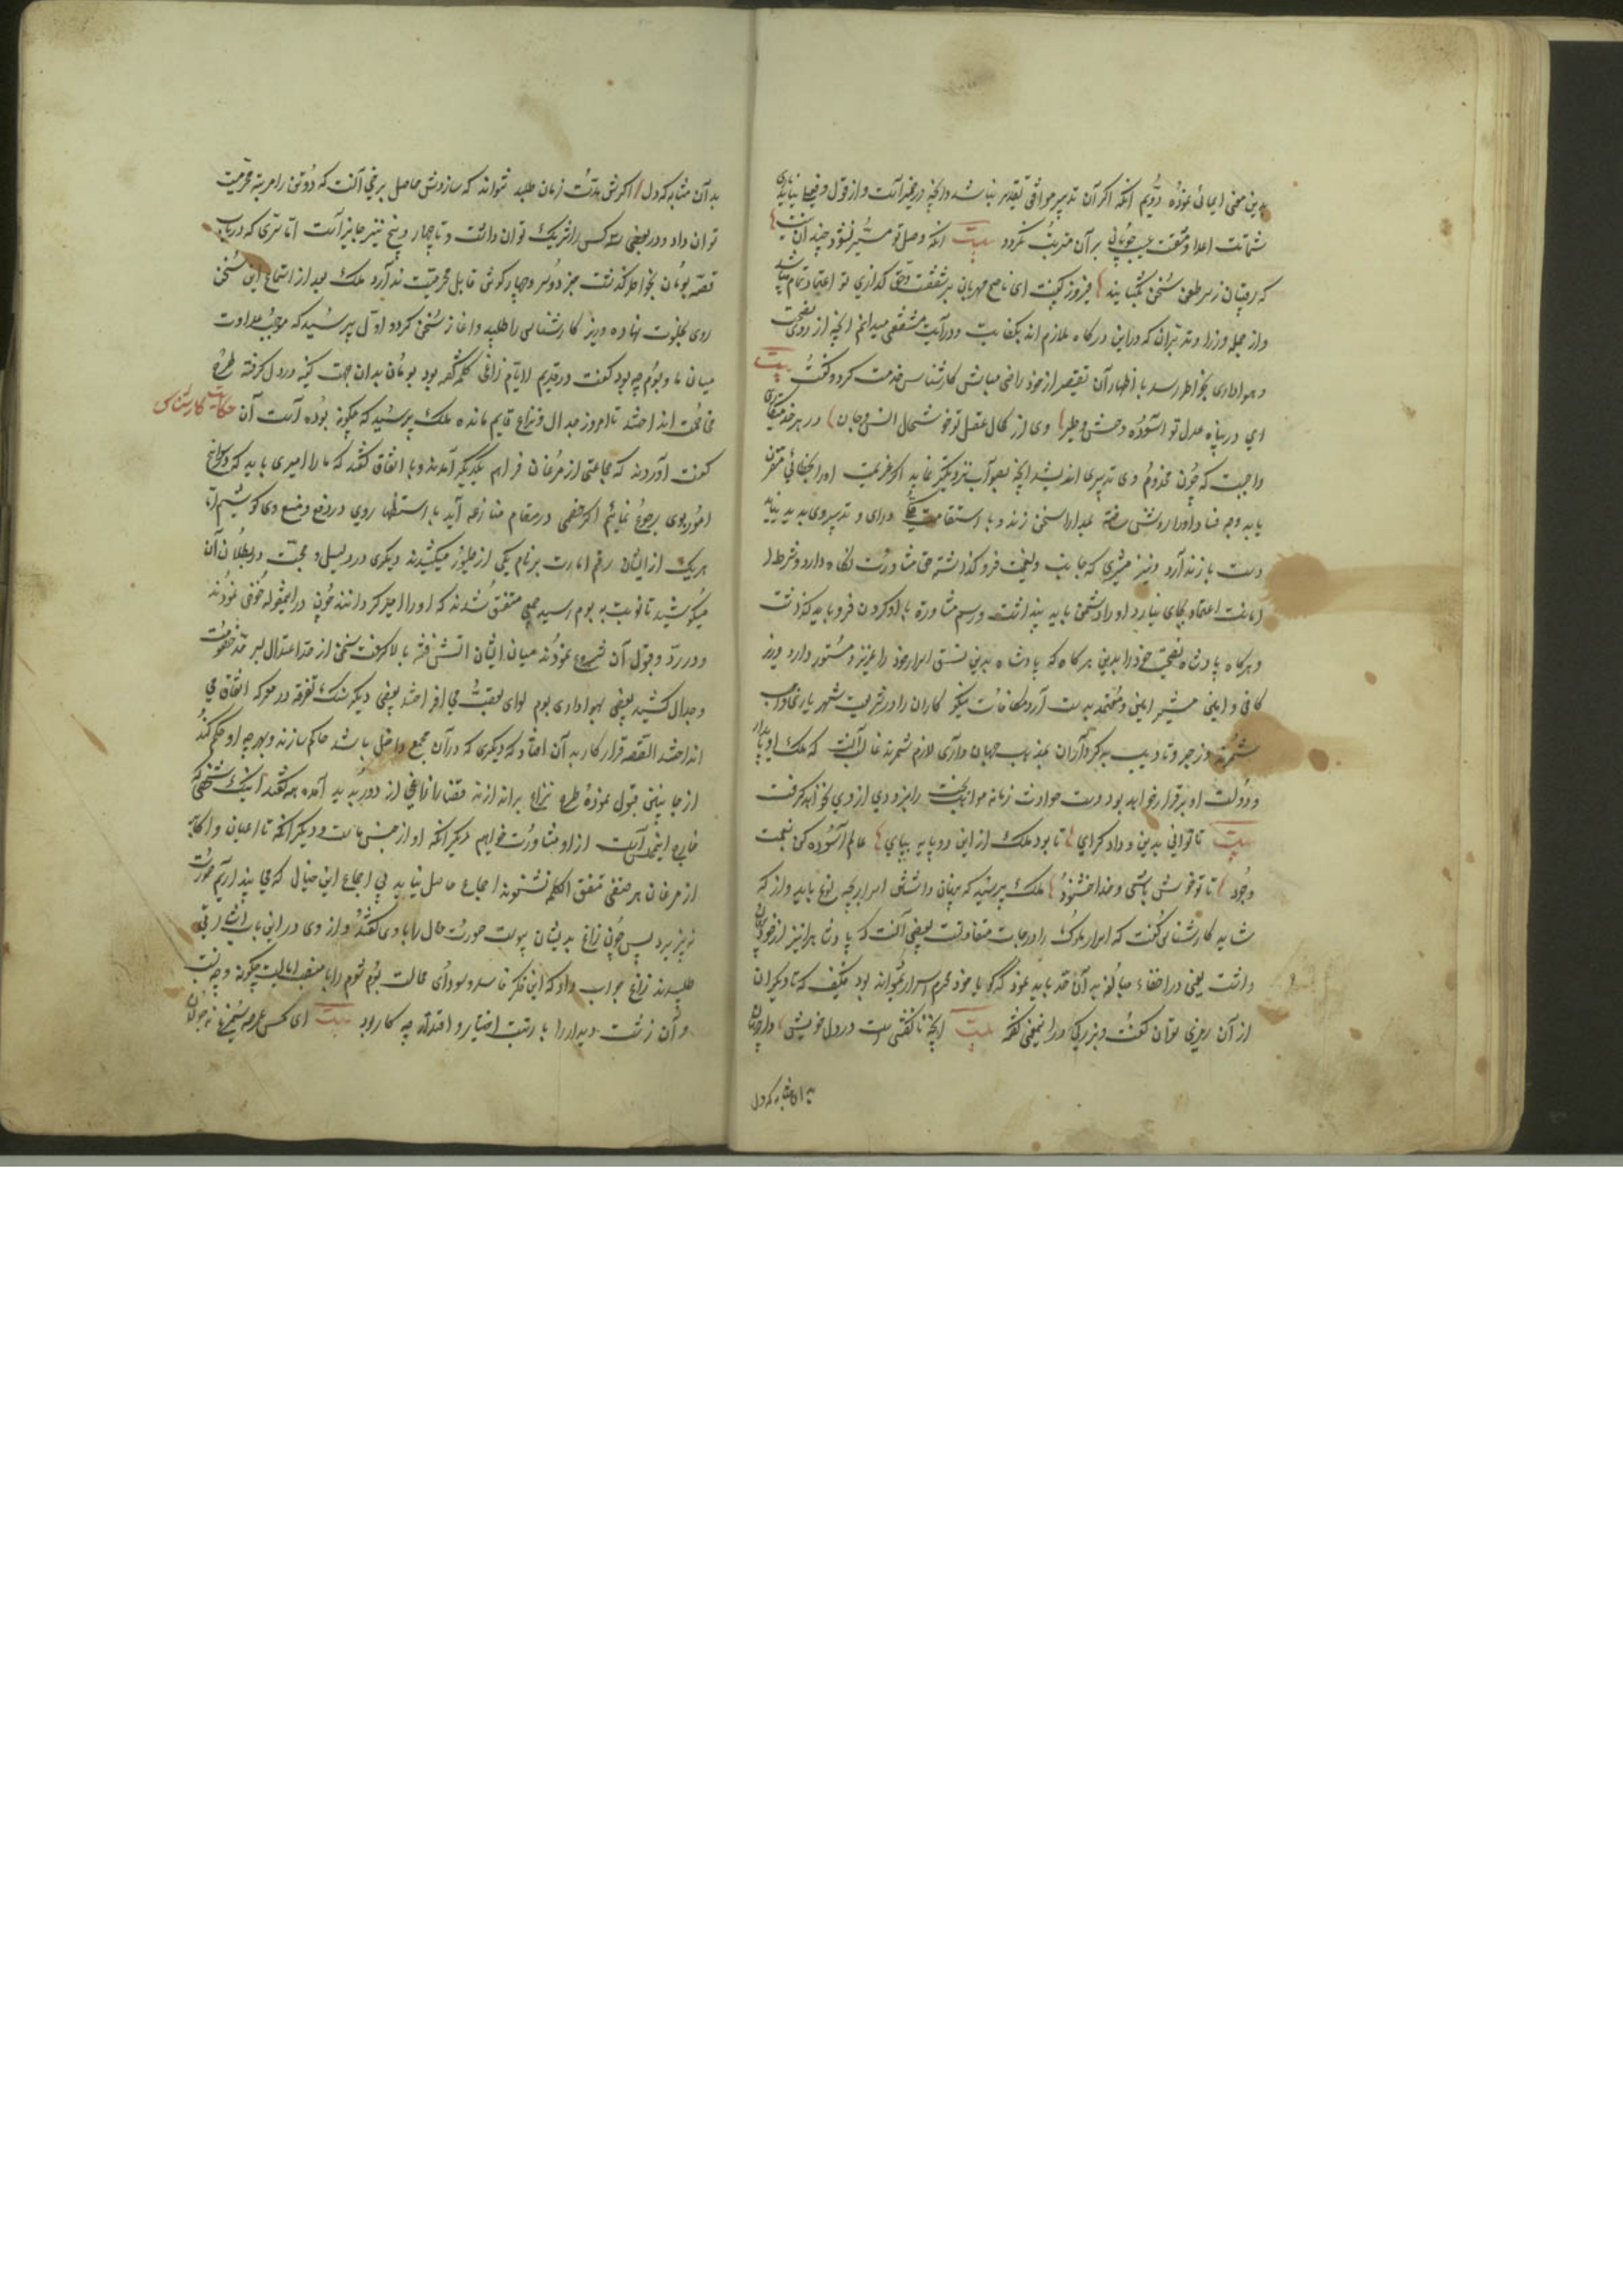 بدین معنی ایمائی نموده دویم آنکه اگر آن تدبیر موافق تقدیر نباشد و آنچه در ضمیر است و از قول بفعل نیاید
شماتت اعدا و منقصت عیب جویان بر آن مترتب نگردد بیت آنکه وصل تو میسر نشود چند آن نیست
که رقیبان ز سر طعن سخن بگشایند فیروز گفت ای ناصح مهربان بر شفقت و حق گذاری تو اعتماد تمام میباشد
و از جمله وزرا و مدبران که در این درگاه ملازم اند بکفایت و درآیت مشفقی میدانم آنچه از روی نصیحت
و هواداری بخاطر رسد با اظهار آن تقصیر از خود راضی مباش کارشناس خدمت کرد و گفت بیت
ای در پناه عدل تو آسوده وحش و طیر وی از کمال عقل تو خوشحال انس و جان در هر خدمتکاری
واجبست که چون مخدوم وی تدبیری اندیشد آنچه بصواب نزدیکتر نماید اگر عزیمت او را بخطائی مقرن
یابد وجه فساد او را روشن ساخته بمدارا سخن راند و با استقامت درای و تدبیر وی پدید نیاید
دست باز ندارد و نیز مشیری که جانب ولی نعمت فرو گذاشته حق مشاورت نگاه ندارد و شرط
امانت اعتماد بجای نیارد او را دشمن باید پنداشت و رسم مشاورة با او کردن فرو باید گذاشت
و هرگاه پادشاه نصیحت خود را بدین هرگاه که پادشاه بدین نسق اسرار خود را عزیز و مستور دارد وزیر
کافی و امین مشیر امین و معتمد بدست آرد و مکافات نیکو کاران را در شریعت شهریاری واجب
شمرد و زجر و تادیب بدکرداران بمذهب جهان داری لازم شمرند غالب آنست که ملک او پایدار
و دولت او برقرار خواهد بود و دست حوادث زمانه مواهب بخت را بزودی از وی نخواهد گرفت
بیت تا توانی بدین و داد گرای تا بود ملک از این دو پایه بپای عالم آسوده کن بنعمت
وجود تا تو خوش باشی و خدا خشنود ملک پرسید که پنهان داشتن اسرار بچه نوع باید و از که
شاید کارشناس گفت که اسرار ملوک را درجات متفاوتست بعضی آنست که پادشاه را نیز از خود پنهان
داشت یعنی در اخفاء مبالغه به آن حد باید نمود که گویا خود محرم اسرار نتواند بود فکیف که با دیگران
از آن رمزی توان گفت و بزرگی در این معنی گفته بیت آنچه ناگفتنی است در دل خویش دار پنهان
بدان مثابه که دل
بدان مثابه که دل اگرش مدت زمان طلبد نتواند که سازدش حاصل برخی آنست که دو تن را مرتبه محرمیت
توان داد و در بعضی سه کس را شریک توان داشت و تا چهار و پنج نیز جایز است اما سری که در باب
قصه بومان بخاطر گذشت جز دو سر و چهار گوش قابل محرمیت ندارد ملک بعد از استماع این سخن
روی بخلوت نهاده وزیر کارشناس را طلبید و آغاز سخن کرد و اول پرسید که موجب عداوت
میان ما و بوم چه بود گفت در قدیم الایام زاغی کلمه گفته بود بومان بدان جهت کینه در دل گرفته طرح
مخالفت انداختند تا امروز جدال و نزاع قایم مانده ملک پرسید که چگونه بوده است آن حکایت کارشناس
گفت آورده اند که جماعتی از مرغان فراهم یکدیگر آمدند و با اتفاق گفتند که ما را امیری باید که در سوانح
امور بوی رجوع نمائیم اگر خصمی در مقام منازعه آید با استظهار وی در دفع و منع وی کوشیم اما
هریک از ایشان رقم امارت بر نام یکی از طیور میکشیدند دیگری در دلیل و حجت در بطلان آن
میکوشید تا نوبت به بوم رسید جمعی متفق شدند که او را امیر گردانند چون در اینمقوله خوض نمودند
و در رد و قبول آن شروع نمودند میان ایشان آتش فتنه بالا گرفت سخن از حد اعتدال بسرحد خصومت
و جدال کشید بعضی بهواداری بوم لوای تعصب می افراختند بعضی دیگر سنگ تفرقه در معرکه اتفاق می
انداختند القصه قرار کار به آن افتاد که دیگری که در آن مجمع داخل نباشد حاکم سازند و بهرچه او حکم کند
از جانبین قبول نموده طرح نزاع براندازند قضا را زاغی از دور پدید آمده همه گفتند اینک شخصی که
خارج این مجلس است از او مشاورت خواهیم دیگر آنکه او از جنس ماست و دیگر آنکه تا اعیان و اکابر
از مرغان هر صنفی متفق الکلمه نشوند اجماع حاصل نیاید بی اجماع این خیالی که می پنداریم صورت
نپذیرد پس چون زاغ بدیشان پیوست صورت حال را با وی گفتند و از وی در این باب اشارتی
طلبیدند زاغ جواب داد که این فکر فاسد و سودای محالست بوم شوم را با منصب ایالت چگونه و چه نسبت
و آن زشت دیدار را با رتبت اختیار و اقتدار چه کار بود بیت ای مگس عرصه سیمرغ نه جولانگه